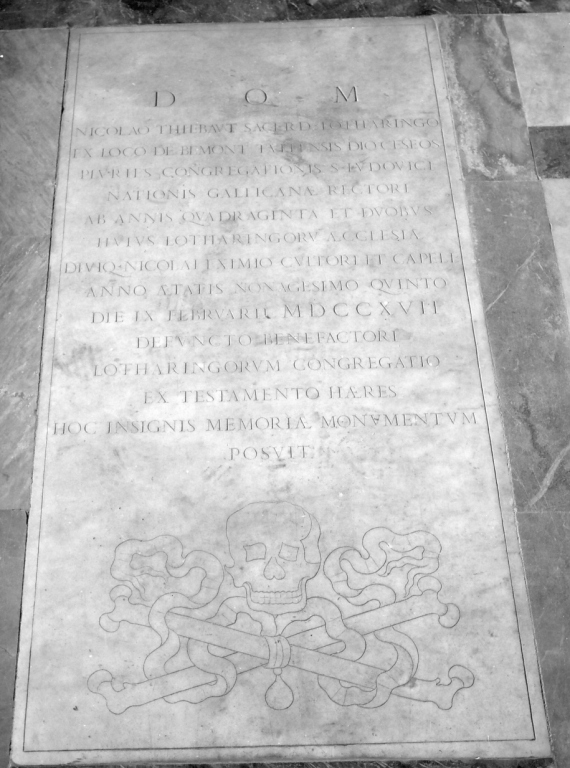 D O M
NICOLAO THIEBAVT SACERD LOTHARINGO
EX LOCO DE BEMONT TVLLENSIS DIOCESEOS
PLVRIES CONGREGATIONIS S LVDOVICI
NATIONIS GALLICANÆ RECTORI
AB ANNIS QVADRAGINTA ET DVOBVS
HVIVS LOTHARINGORV ÆCCLESIÆ
DIVIQ NICOLAI EXIMIO CVLTORI ET CAPELL
ANNO ÆTATIS NONAGESIMO QVINTO
DIE IX FEBRVARII MDCCXVII
DEFVNCTO BENEFACTORI
LOTHARINGORVM CONGREGATIO
EX TESTAMENTO HÆRES
HOC INSIGNIS MEMORIÆ MONVMENTVM
POSVIT